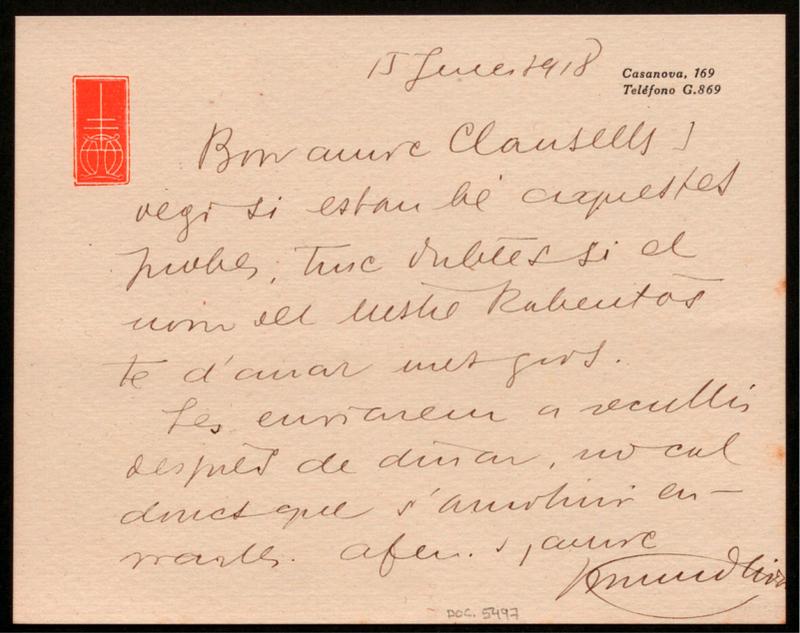 15 Jener 1918
Casanova, 169
Teléfono G.869
Bon amic Clausells
vegi si estan bé aquestes
probes, tinc dubtes si el
nom del Mestre Rabentós
te d'anar més gros.
Les enviarem a recullir
després de dinar, no cal
doncs que s'amohini en-
viarles. afm. s, amic
DOC. 5497